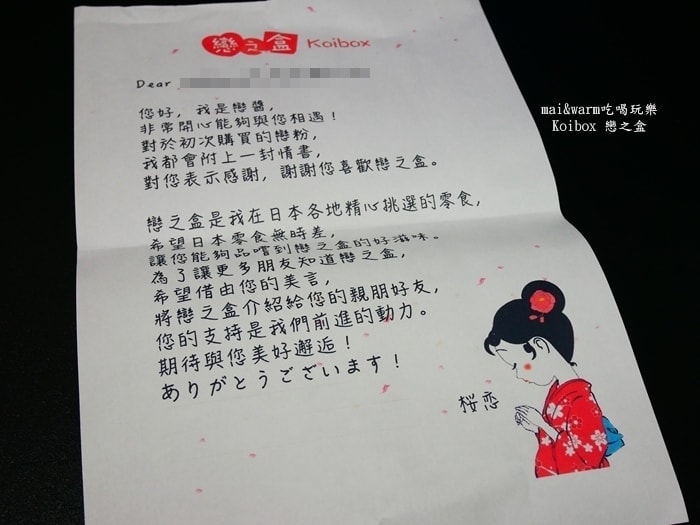 戀之盒 Koibox
Dear
您好，我是戀醬，
非常開心能夠與您相遇！
對於初次購買的戀粉，
我都會附上一封情書，
對您表示感謝，謝謝您喜歡戀之盒。
戀之盒是我在日本各地精心挑選的零食，
希望日本零食無時差，
讓您能夠品嚐到戀之盒的好滋味。
為了讓更多朋友知道戀之盒，
希望借由您的美言，
將戀之盒介紹給您的親朋好友，
您的支持是我們前進的動力。
期待與您美好邂逅！
ありがとうございます！
桜恋
mai&warm吃喝玩樂
Koibox 戀之盒